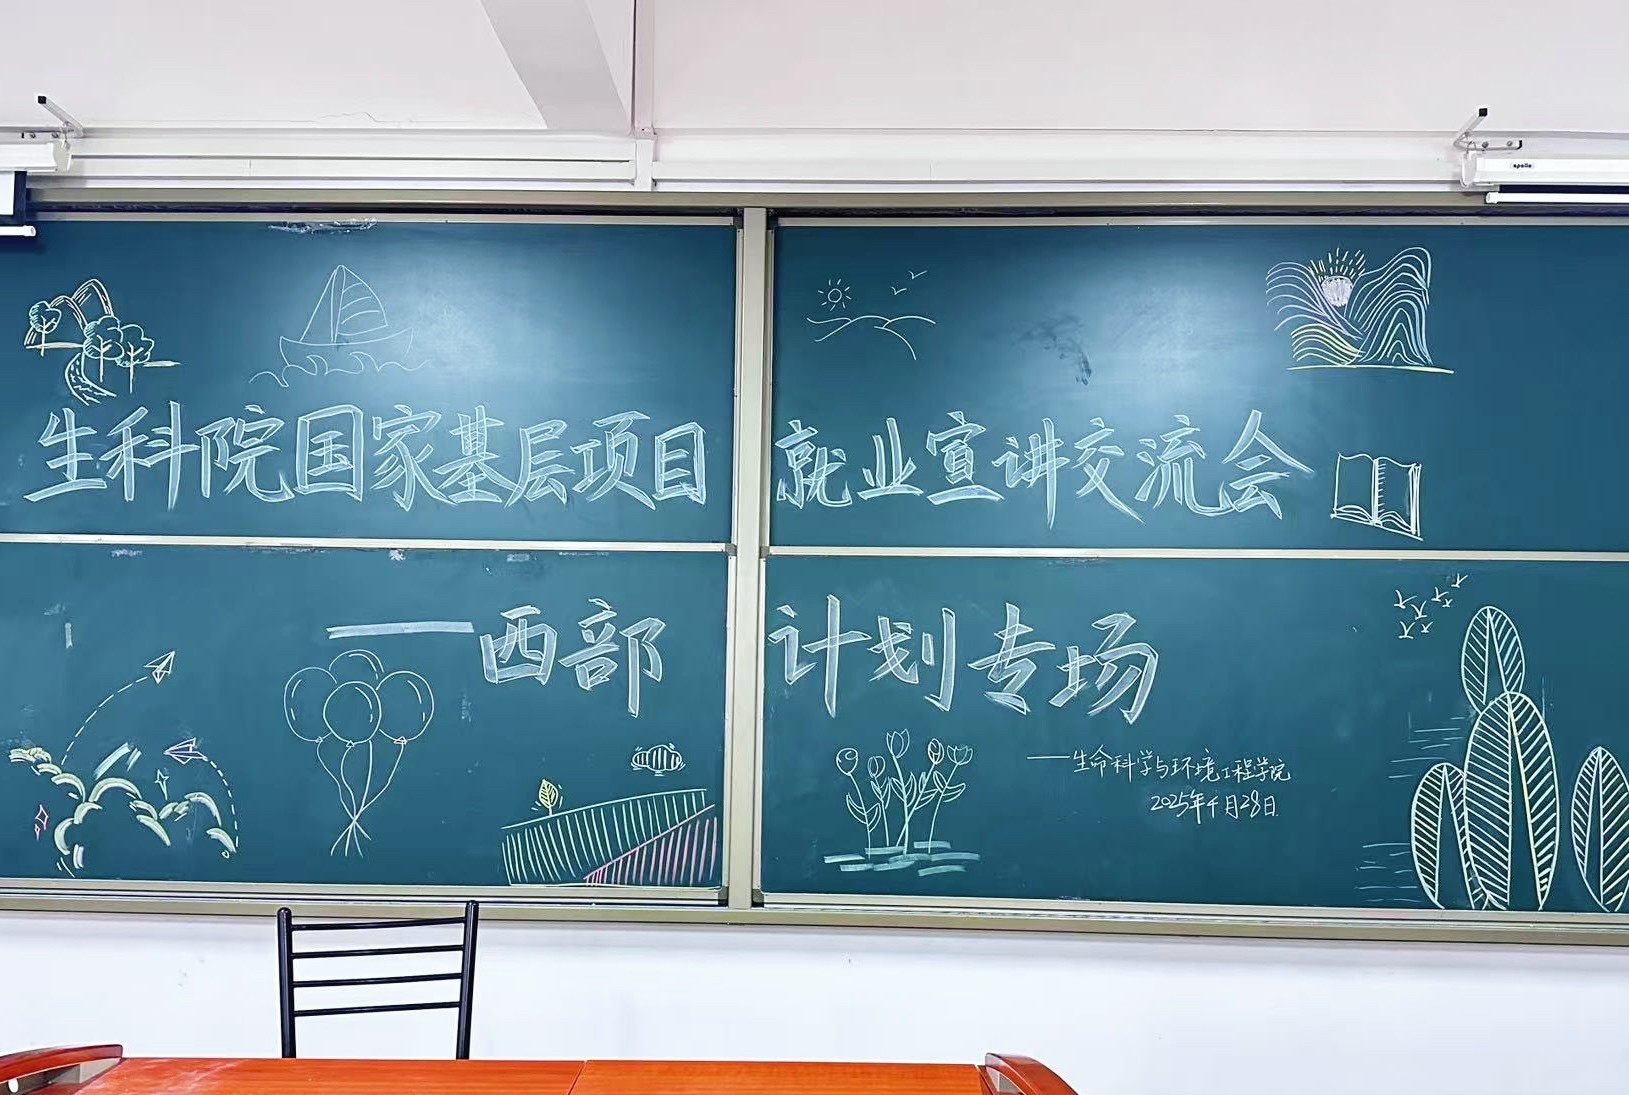 生科院国家基层项目就业宣讲交流会
——西部计划专场
——生命科学与环境工程学院
2025年4月28日
apollo